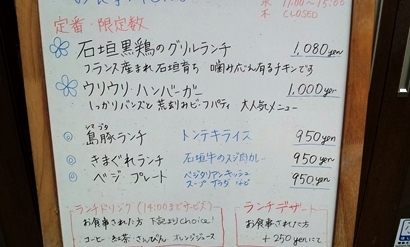 11:00~15:00
木 CLOSED
定番・限定数
石垣黒鶏のグリルランチ 1,080yen
フランス産まれ石垣育ち 噛みごたえ有るチキンです
ウリウリ・ハンバーガー 1,000yen
しっかりバンズと荒刻みビーフパティ 大人気メニュー
島豚ランチ トンテキライス 950yen
きまぐれランチ 石垣牛のスジ肉カレー 950yen
ベジ プレート ベジタリアンキッシュ スープ サラダ 950yen
ランチドリンク (14:00までサービス)
お食事された方 下記よりchoice!
コーヒー 紅茶 さんぴん オレンジジュース
ランチデザート
お食事された方
+250yenにて